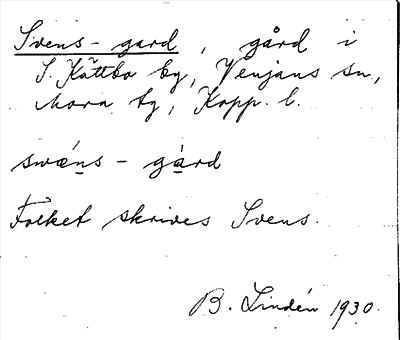 Svens-gard, gård i
S. Kättbo by, Venjans sn,
Mora tg, Kopp. l.
swǽns - gård
Folket skrives Svens.
B. Lindén 1930.